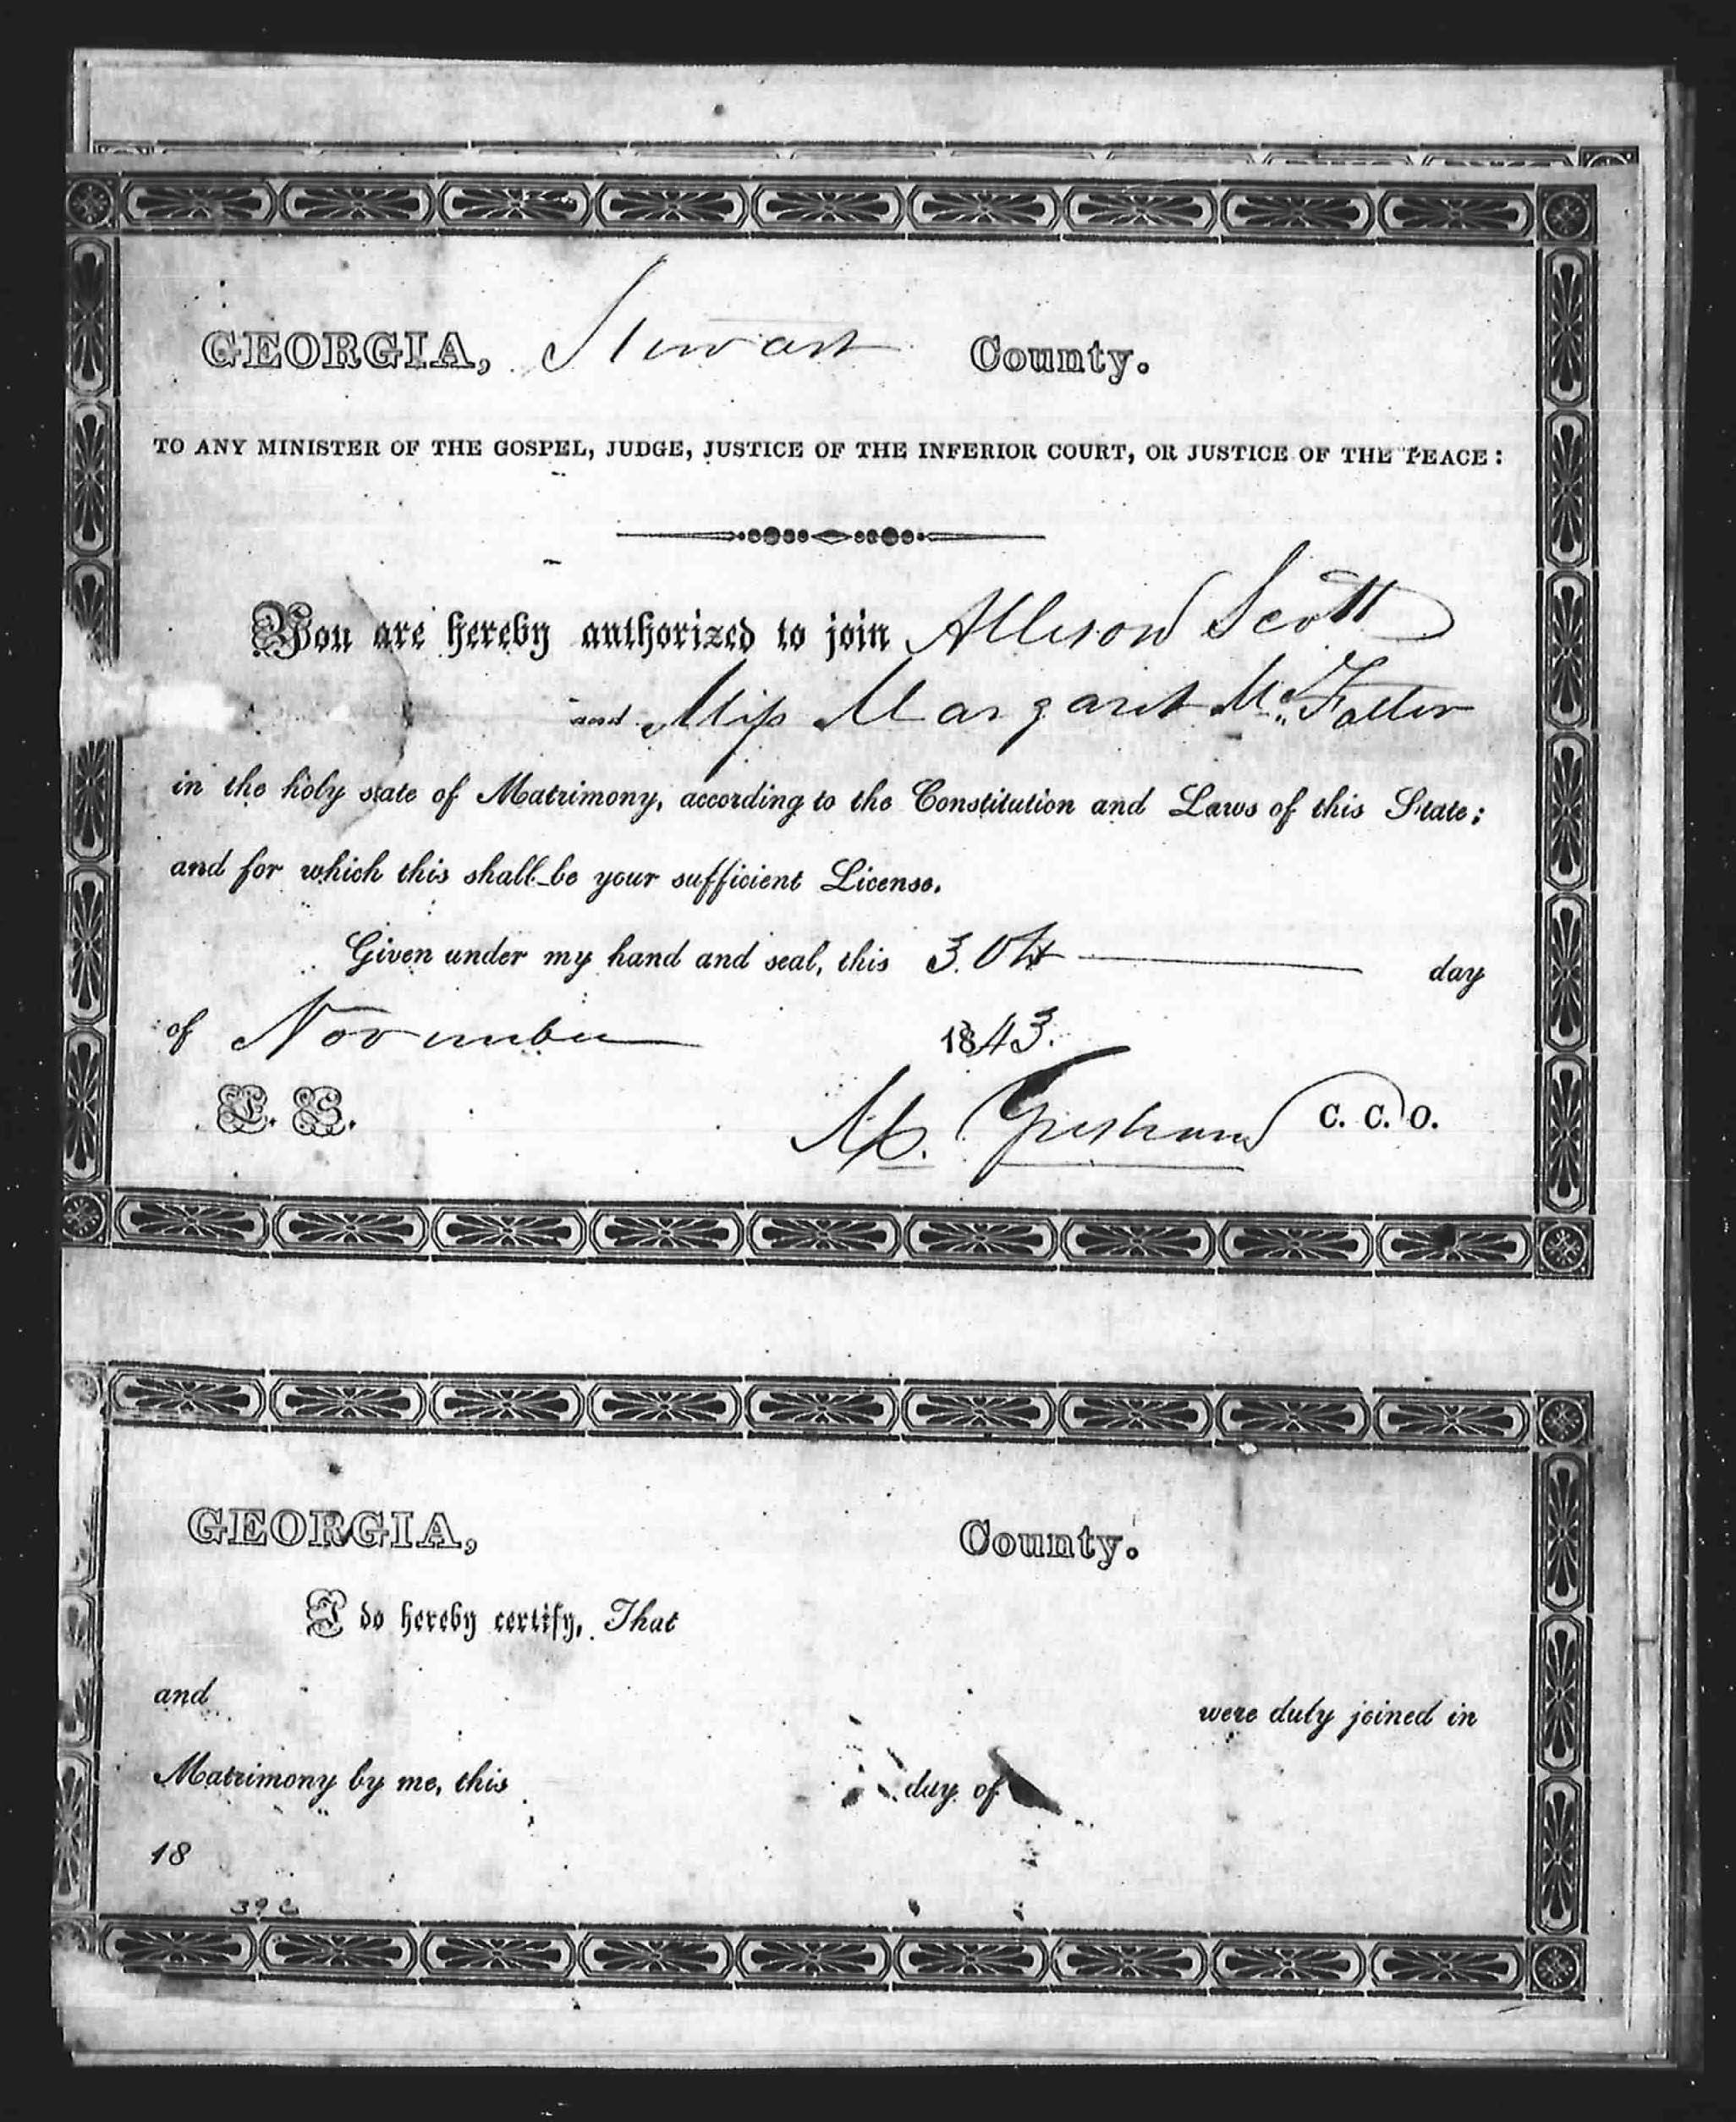 GEORGIA, Stewart County.
TO ANY MINISTER OF THE GOSPEL, JUDGE, JUSTICE OF THE INFERIOR COURT, OR JUSTICE OF THE PEACE:
You are hereby authorized to join Allison Scott
and Miss Margaret Mc
in the holy state of Matrimony, according to the Constitution and Laws of this State;
and for which this shall be your sufficient License.
Given under my hand and seal, this 30th day
of November 1843.
L. S. M. Gresham C. C. O.
GEORGIA, County.
I do hereby certify, That
and were duly joined in
Matrimony by me, this day of
18